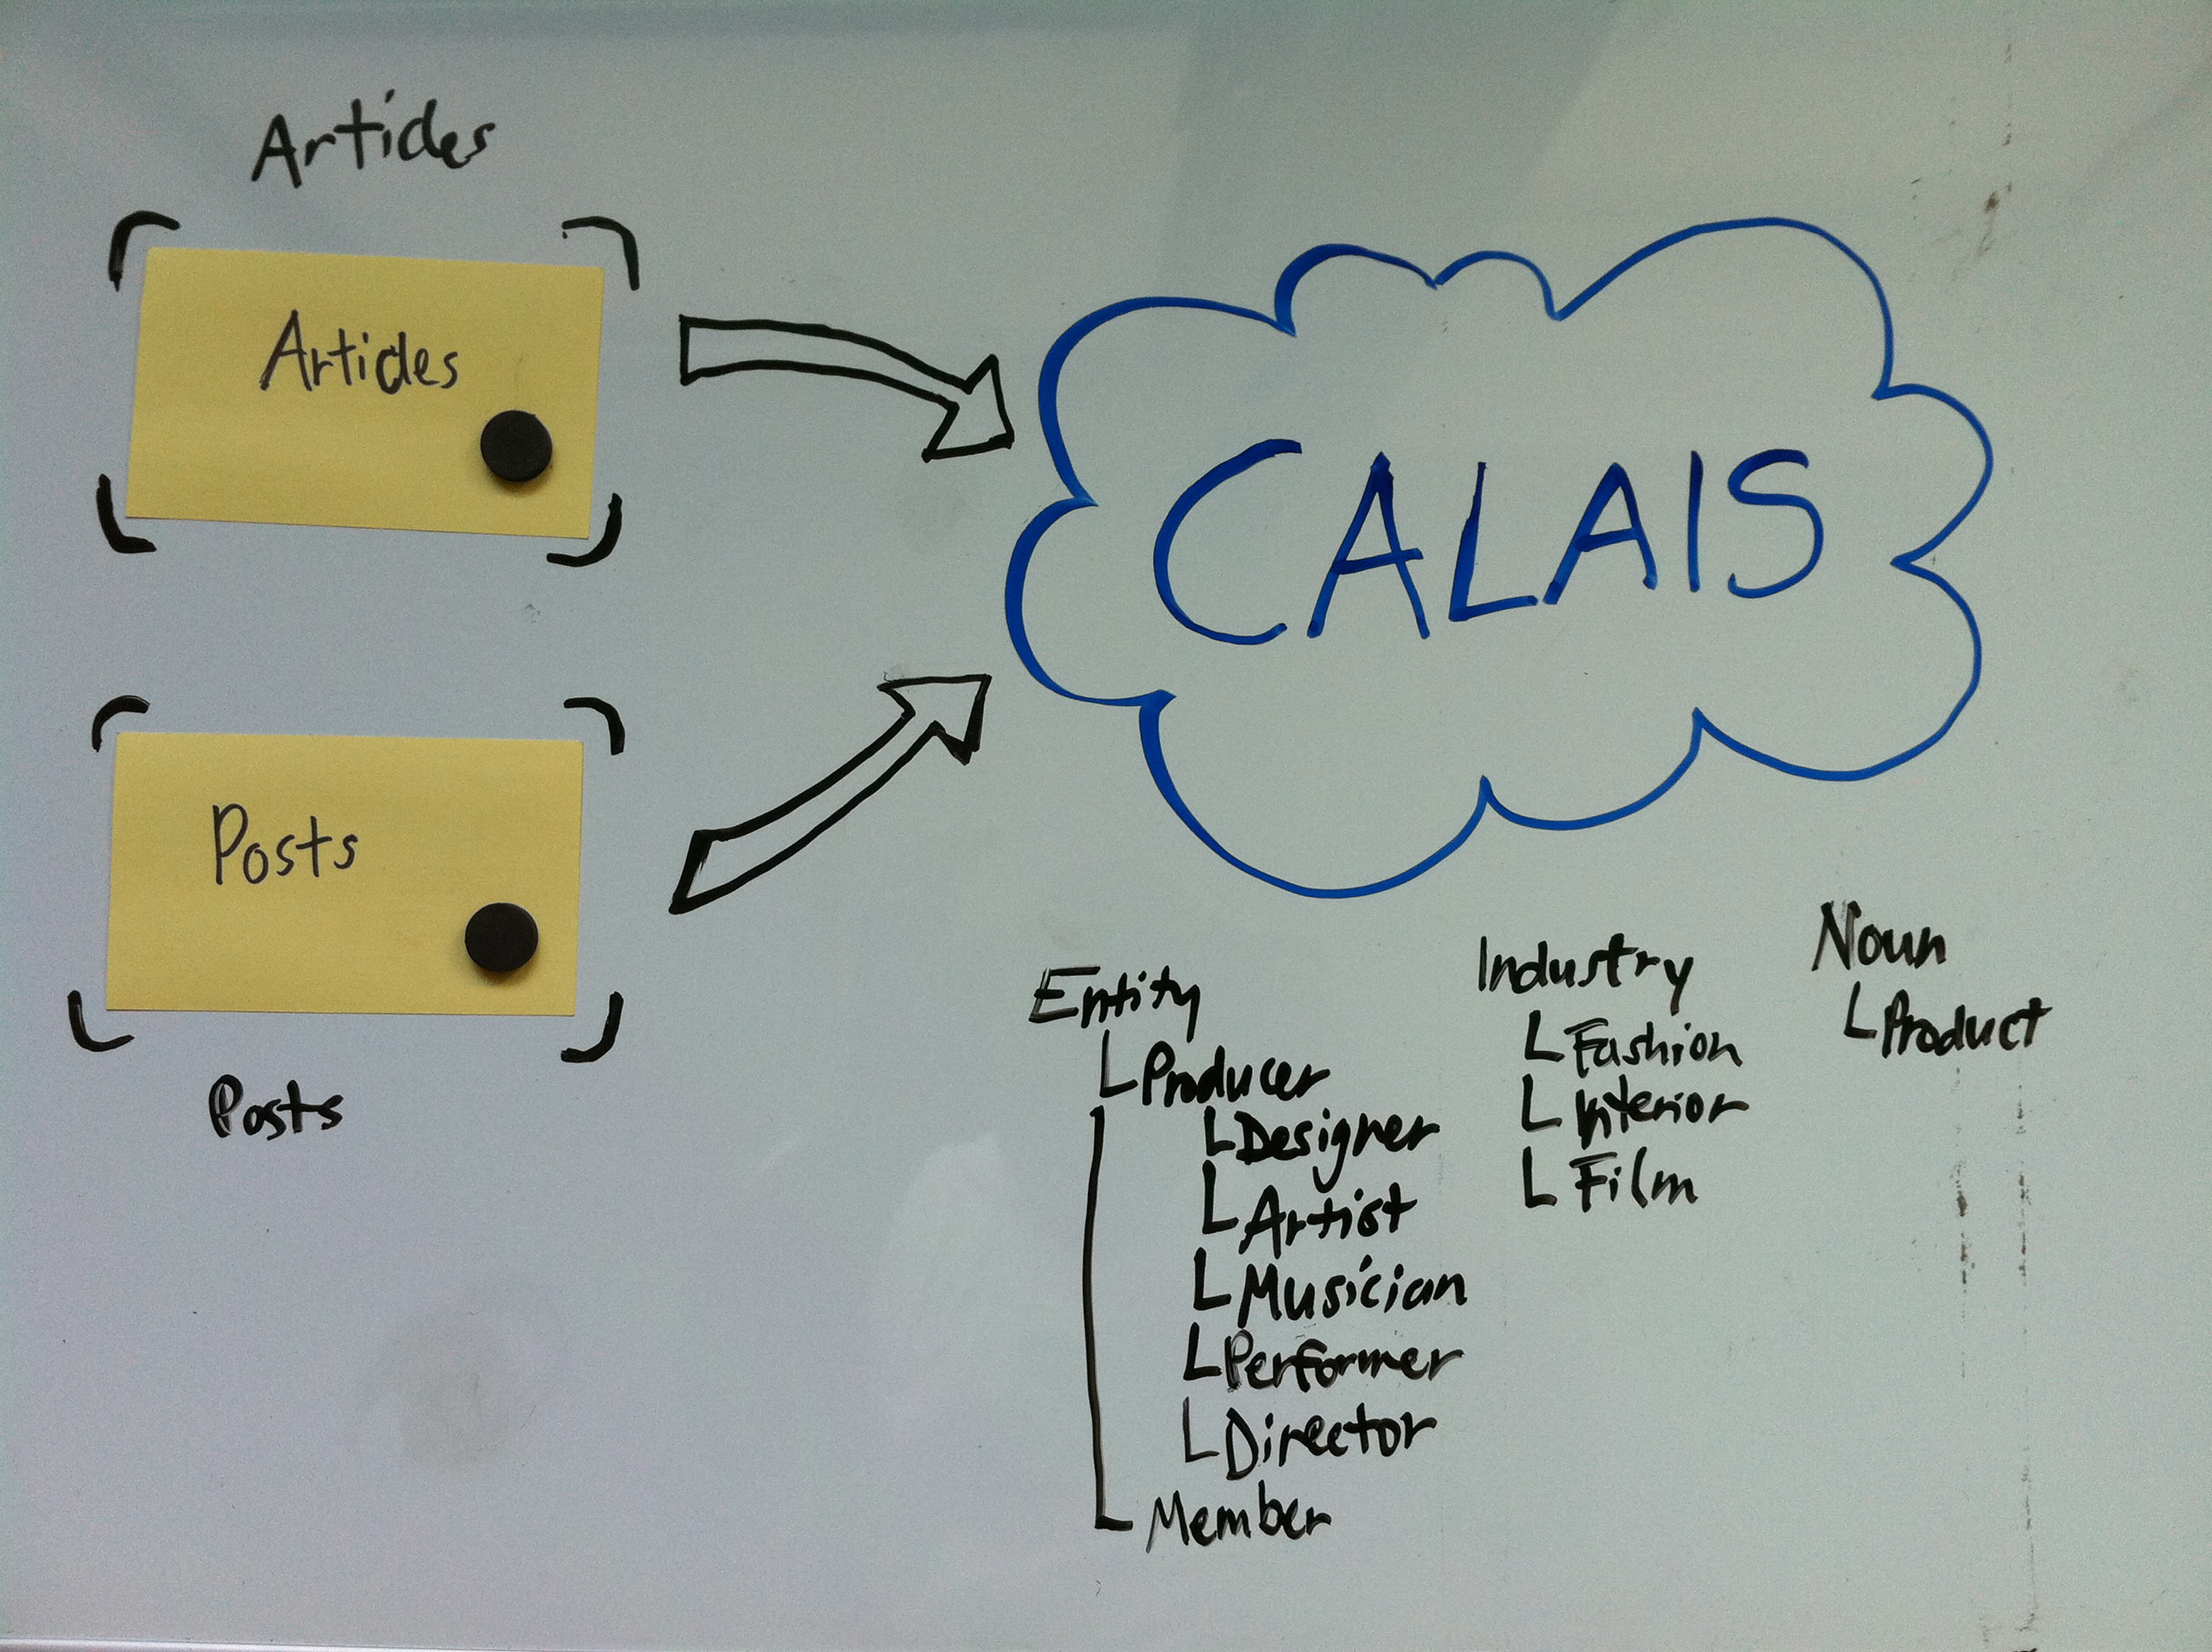 Articles
Articles
Posts
Posts
CALAIS
Entity
Producer
Designer
Artist
Musician
Performer
Director
Member
Industry
Fashion
Interior
Film
Noun
Product